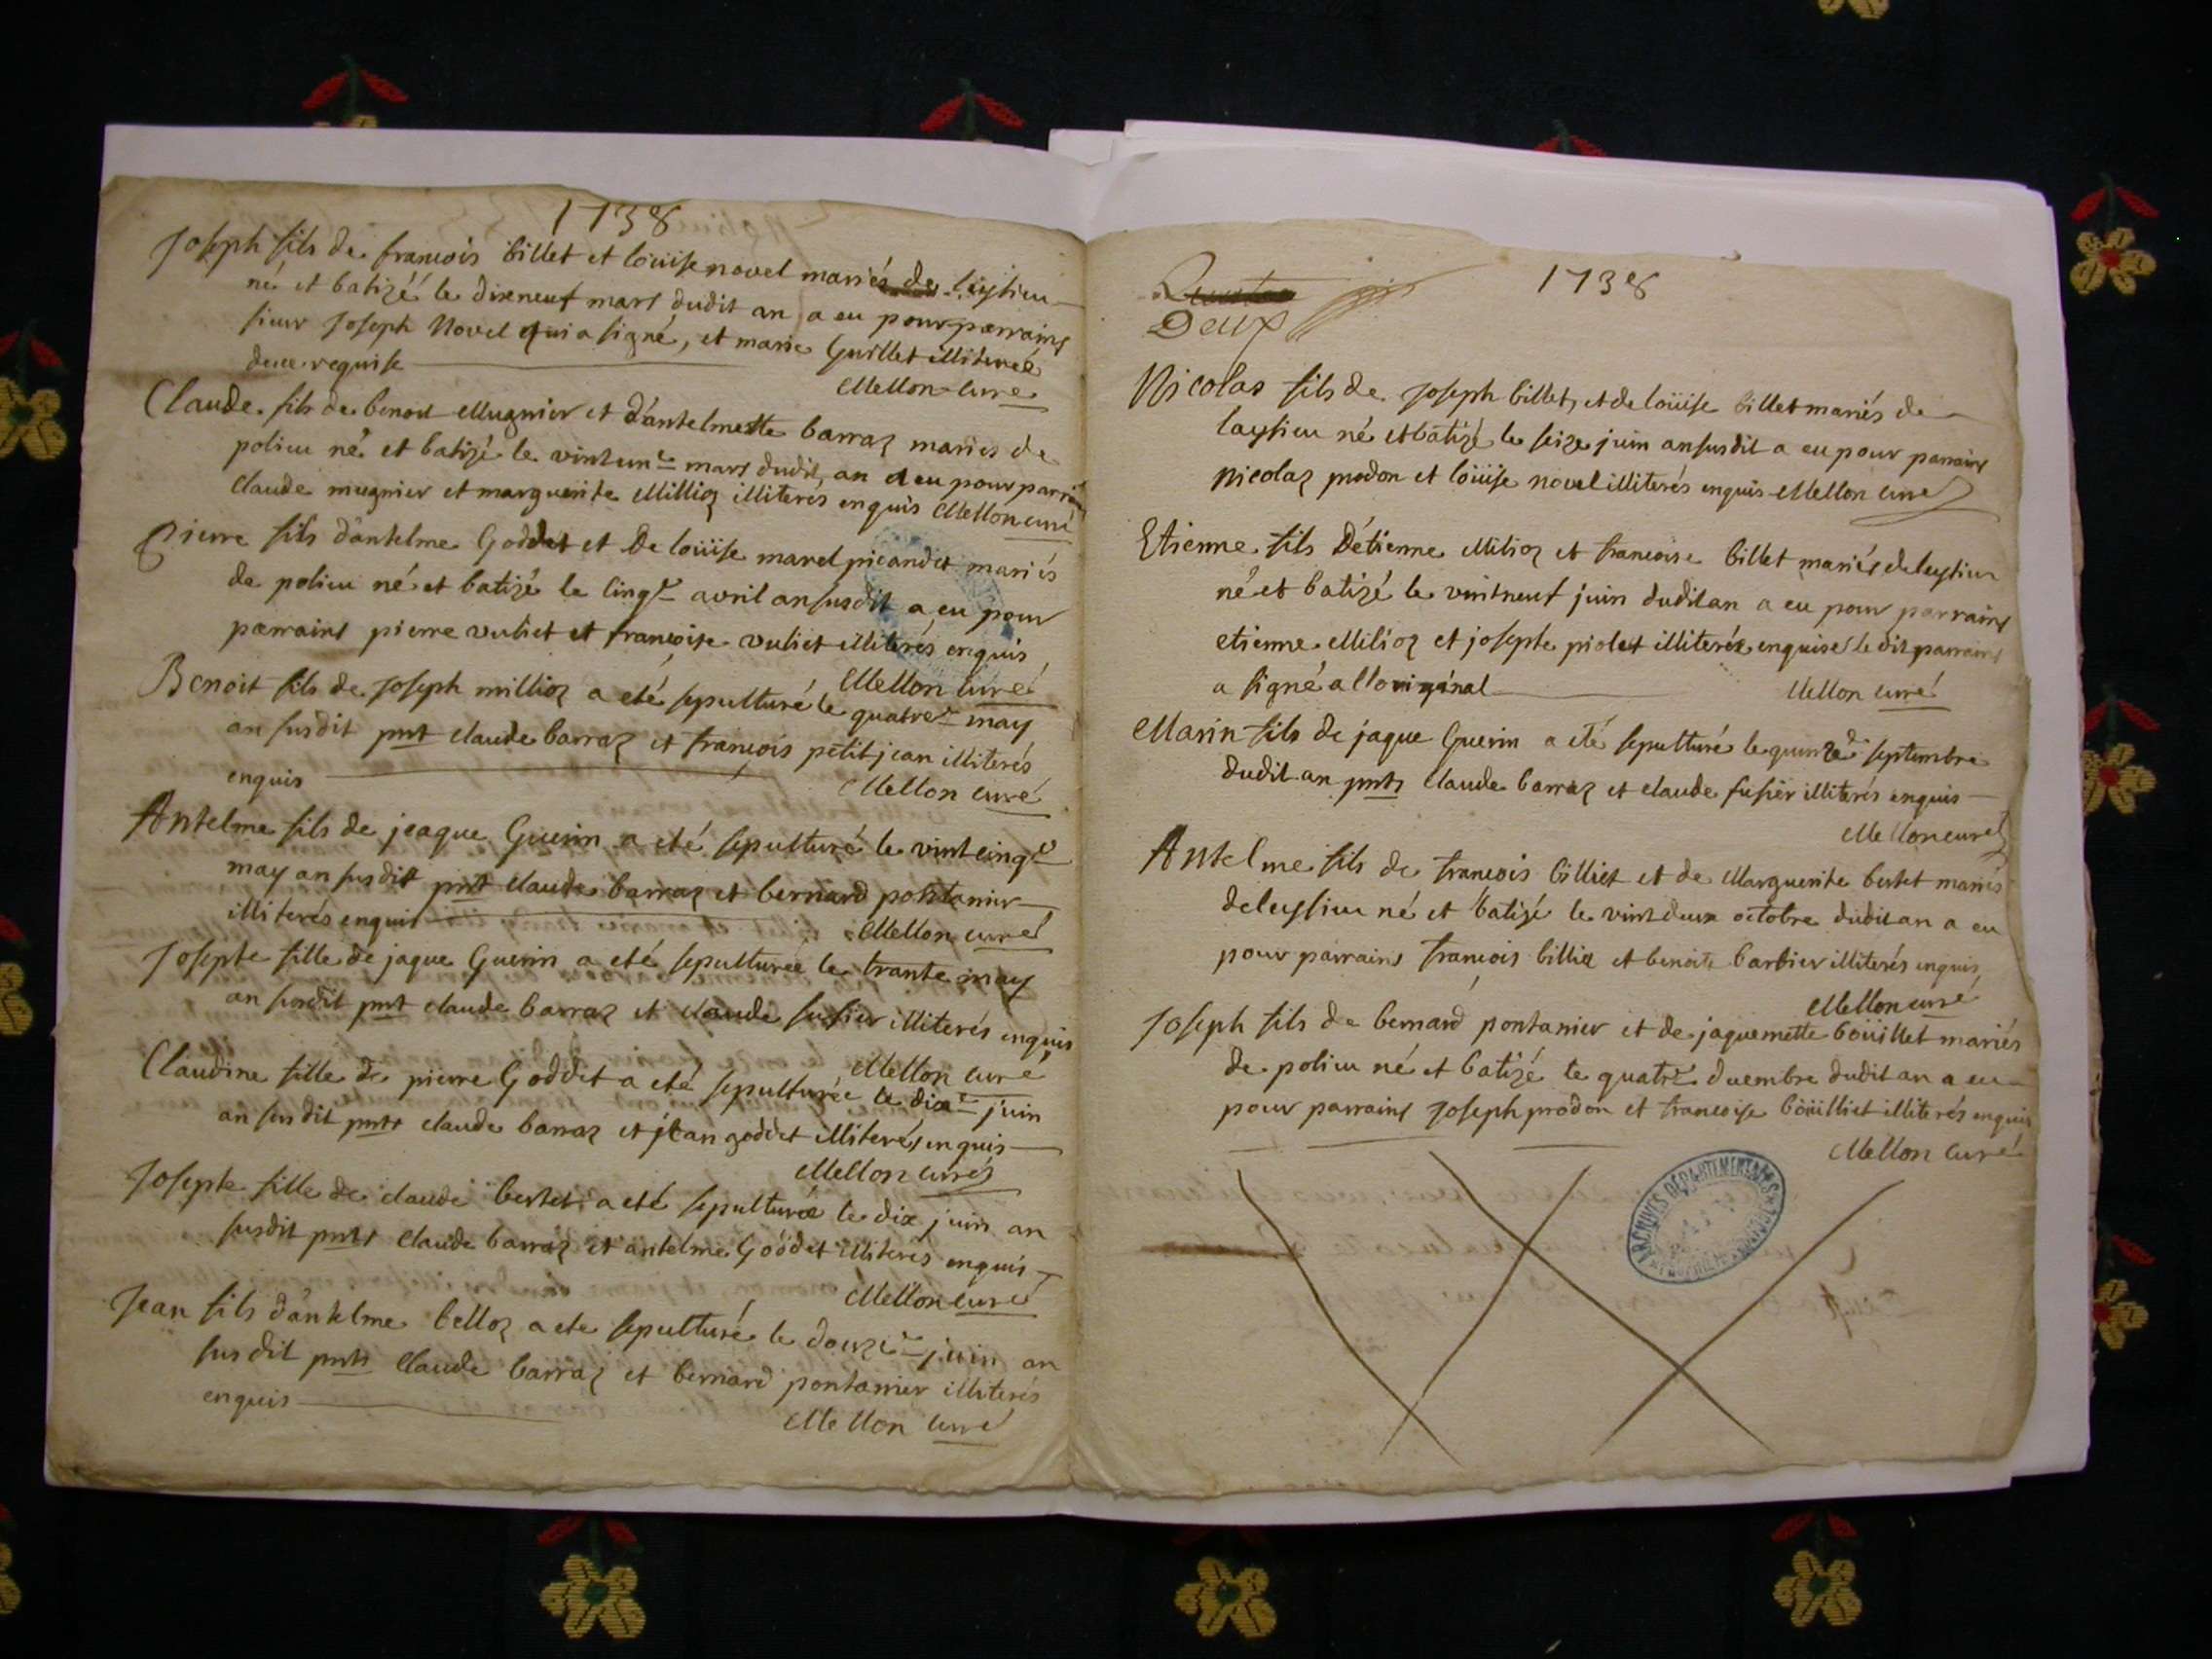 1738
Joseph fils de francois billet et loüise novel mariés de leysieu
né et batizéé le dixneuf mars dudit an a eu pour parrains
sieur Joseph Novel qui a signé, et marie Guillet illiterée
deue requise
Mellon curé
Claude fils de benoit Mugnier et d'antelmette barraz mariés de
polieu né et batizé le vintune mars dudit an a eu pour parrains
claude mugnier et marguerite Millioz illiterés enquis Mellon curé
Pierre fils d'antelme Goddet et De loüise marel picandet mariés
de polieu né et batizé le cinqe avril an susdit a eu pour
parrains pierre vuliet et francoise vuliet illiterés enquis
Mellon curé
Benoit fils de Joseph millioz a eté sepulturé le quatre may
an susdit pnt claude barraz et francois petitjean illiterés
enquis
Mellon curé
Antelme fils de jeaque Guerin a eté sepulturé le vintcinqe
may an susdit pnt claude barraz et bernard pontanier
illiterés enquis
Mellon curé
Josepte fille de jaque Guerin a eté sepulturée le trante may
an susdit pnt claude barraz et claude fusier illiterés enquis
Mellon curé
Claudine fille de pierre Goddet a eté sepulturée le dixe juin
an susdit pnts claude barraz et jean goddet illiterés enquis
Mellon curé
Josepte fille de claude bertet a eté sepulturée le dix juin an
susdit pnts claude barraz et antelme Goddet illiterés enquis
Mellon curé
Jean fils d'antelme belloz a ete sepulturé le douze juin an
susdit pnts Claude barraz et bernard pontanier illiterés
enquis
Mellon curé
1738
Deux
Nicolas fils de Joseph billet, et de loüise billet mariés de
laysieu né et batizé le seize juin an susdit a eu pour parrains
Nicolaz prodon et loüise novel illiterés enquis Mellon curé
Etienne fils D'étienne Milioz et francoise billet mariés de leysieu
né et batizé le vintneuf juin dudit an a eu pour parrains
etienne Milioz et josepte piolet illiterée enquise le dit parrains
a signé a lloriginal
Mellon curé
Marin fils de jaque Guerin a eté sepulturé le quinze septembre
dudit an pnts Claude barraz et claude fusier illiterés enquis
Mellon curé
Antelme fils de francois billiet et de Marguerite bertet mariés
de leyssieu né et batizé le vintdeux octobre dudit an a eu
pour parrains francois billiet et benoite barbier illiterés enquis
Mellon curé
Joseph fils de bernard pontanier et de jaquemette boüillet mariés
de polieu né et batizé le quatre decembre dudit an a eu
pour parrains Joseph prodon et francoise boüilliet illiterés enquis
Mellon curé
ARCHIVES DÉPARTEMENTALES